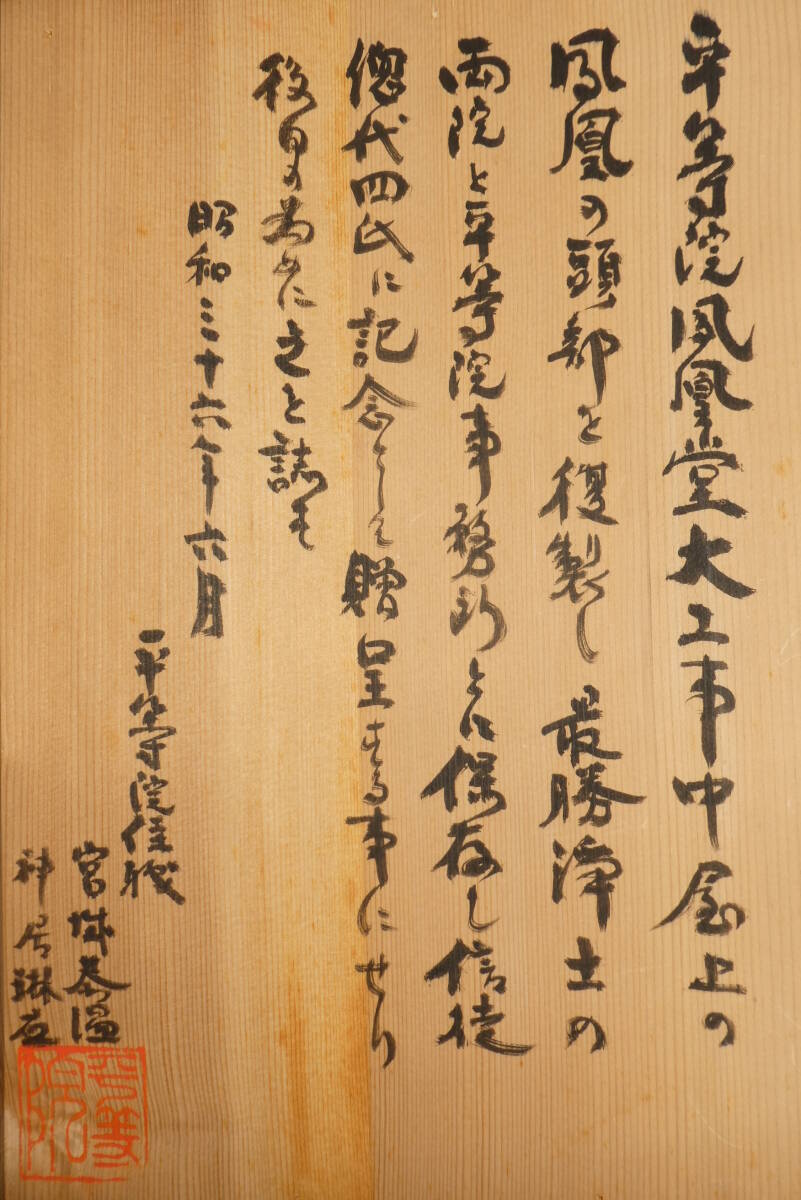 平等院鳳凰堂大工事中屋上の
鳳凰の頭部を復製し最勝浄土の
両院と平等院事務所とに保存し信徒
惣代四氏に記念として贈呈する事にせり
後日の為めに之を誌す
昭和三十六年六月
平等院住職
宮城泰温
神居琳應
平等院印